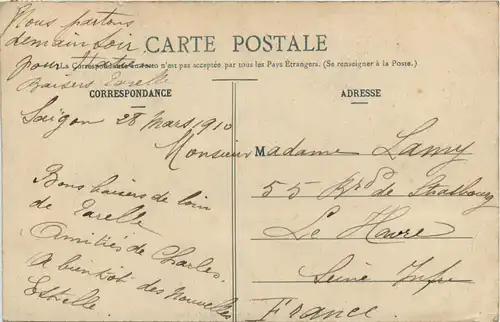 Nous partons
demain soir
pour
Baisers
CARTE POSTALE
La Correspondance au recto n'est pas acceptée par tous les Pays Étrangers. (Se renseigner à la Poste.)
CORRESPONDANCE
Saïgon 28 Mars 1910
Bons baisers de loin
de
Amitiés de Charles
A bientôt des nouvelles
Estelle
ADRESSE
Monsieur Madame Lamy
55 Brd de Strasbourg
Le Havre
Seine Infre
France.